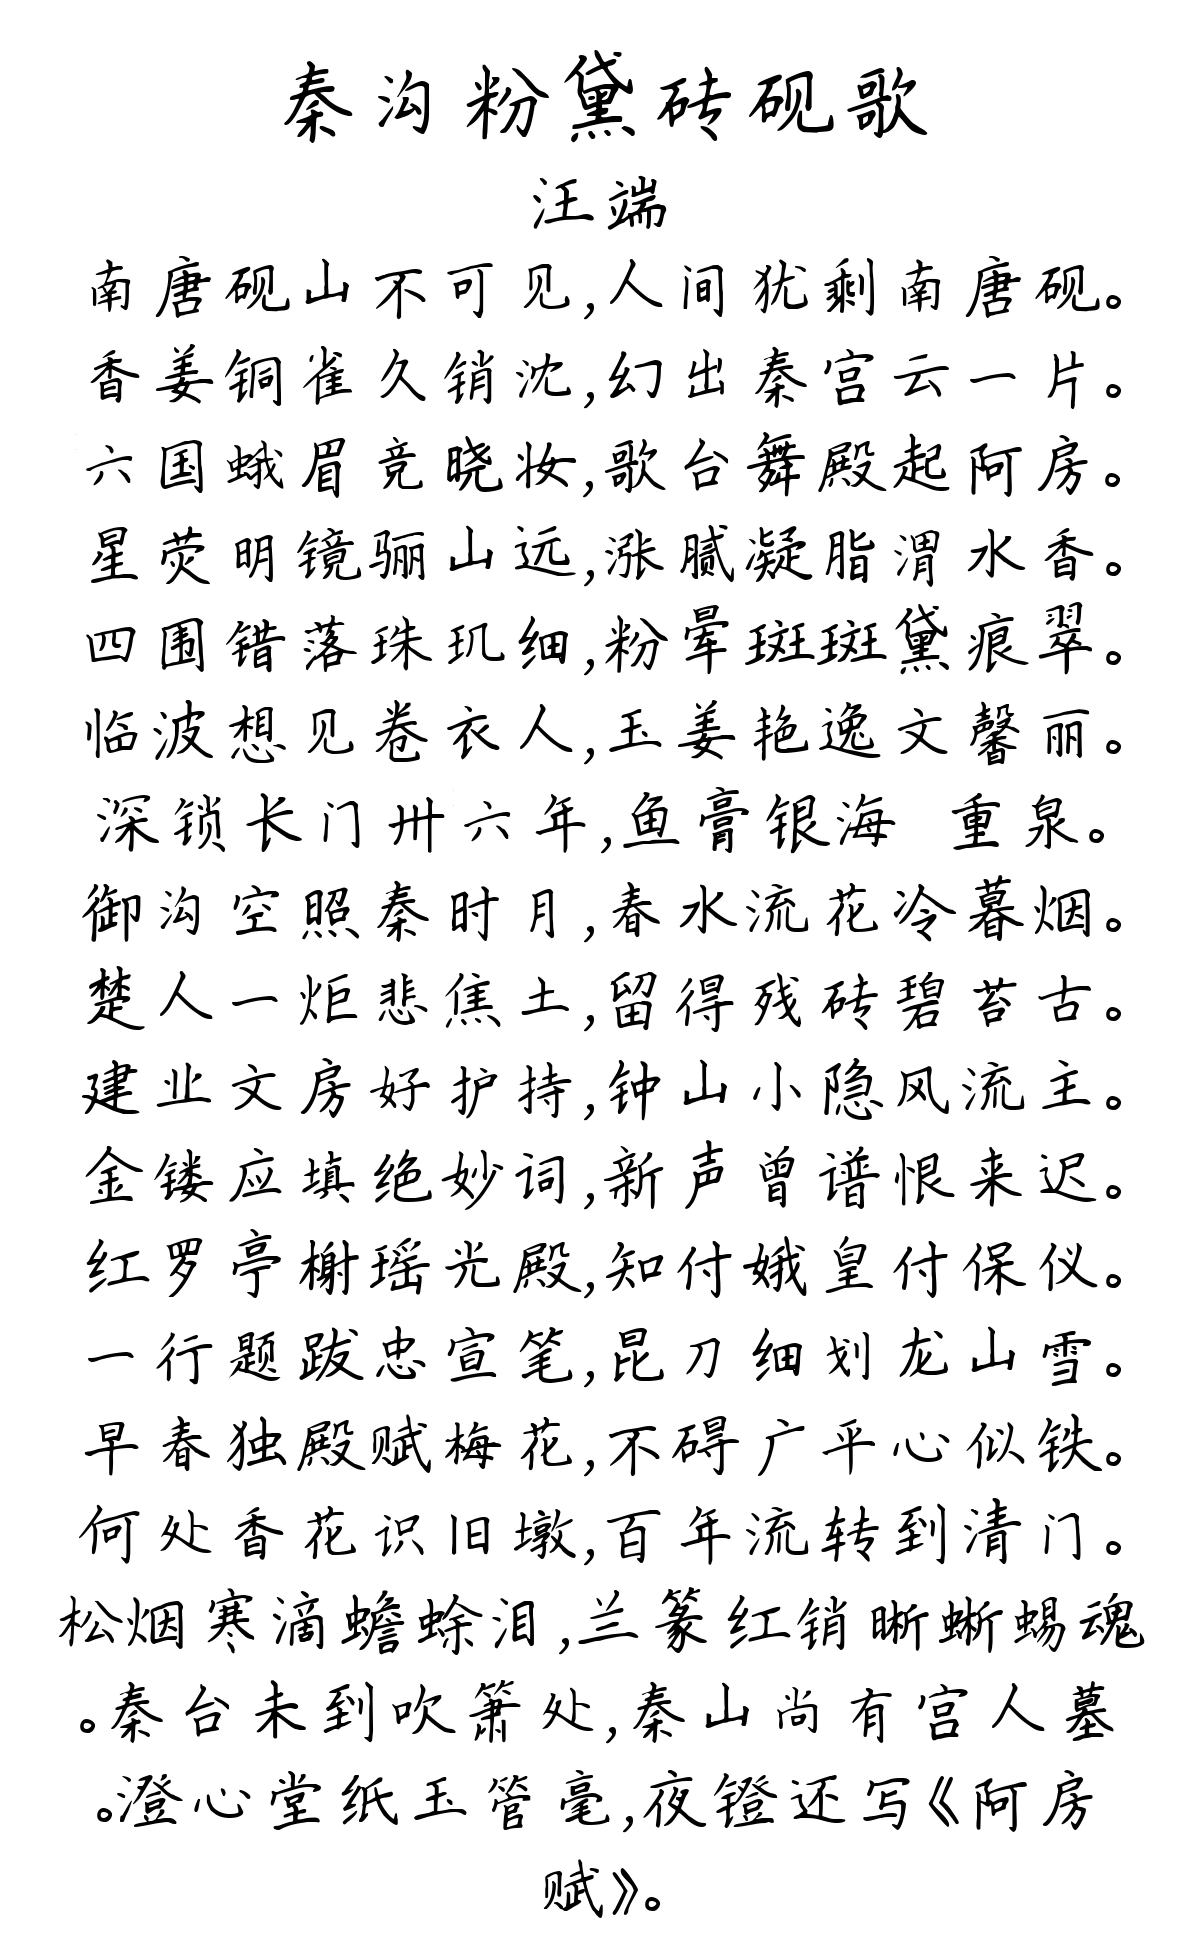 秦沟粉黛砖砚歌
汪端
南唐砚山不可见,人间犹剩南唐砚。
香姜铜雀久销沈,幻出秦宫云一片。
六国蛾眉竞晓妆,歌台舞殿起阿房。
星荧明镜骊山远,涨腻凝脂渭水香。
四围错落珠玑细,粉晕斑斑黛痕翠。
临波想见卷衣人,玉姜艳逸文馨丽。
深锁长门卅六年,鱼膏银海 重泉。
御沟空照秦时月,春水流花冷暮烟。
楚人一炬悲焦土,留得残砖碧苔古。
建业文房好护持,钟山小隐风流主。
金镂应填绝妙词,新声曾谱恨来迟。
红罗亭榭瑶光殿,知付娥皇付保仪。
一行题跋忠宣笔,昆刀细划龙山雪。
早春独殿赋梅花,不碍广平心似铁。
何处香花识旧墩,百年流转到清门。
松烟寒滴蟾蜍泪,兰篆红销晰蜥蜴魂
。秦台未到吹箫处,秦山尚有宫人墓
。澄心堂纸玉管毫,夜镫还写《阿房
赋》。